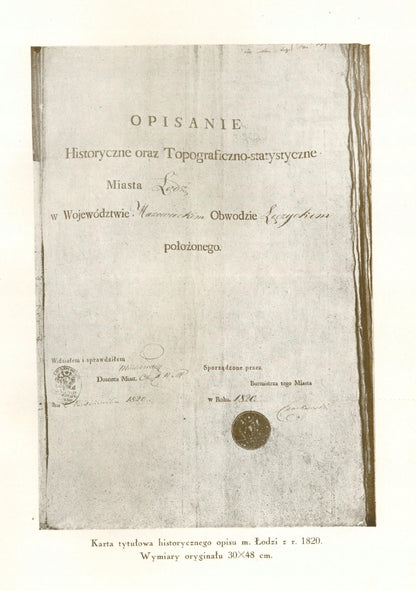 OPISANIE
Historyczne oraz Topograficzno-statystyczne
Miasta Łodz
w Województwie Mazowieckim Obwodzie Łęczyckim
położonego.
Widziałem i sprawdziłem
Dozorca Miast
1820.
Sporządzone przez
Burmistrza tego Miasta
w Roku 1820.
Karta tytułowa historycznego opisu m. Łodzi z r. 1820.
Wymiary oryginału 30×48 cm.